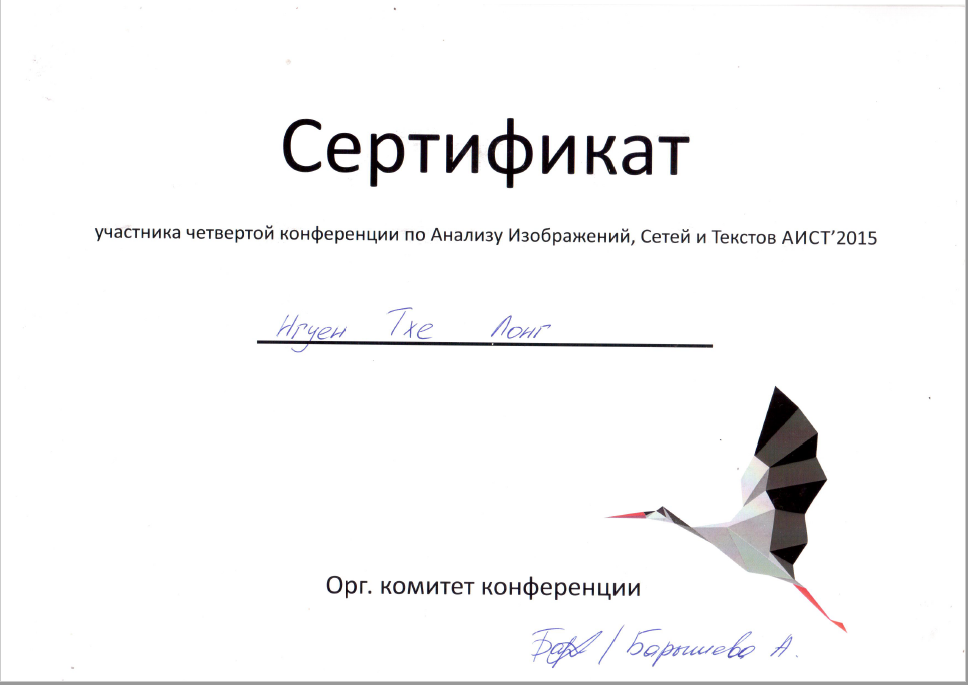 Сертификат
участника четвертой конференции по Анализу Изображений, Сетей и Текстов АИСТ’2015
Нгуен Тхе Лонг
Орг. комитет конференции
/ Барышева А.